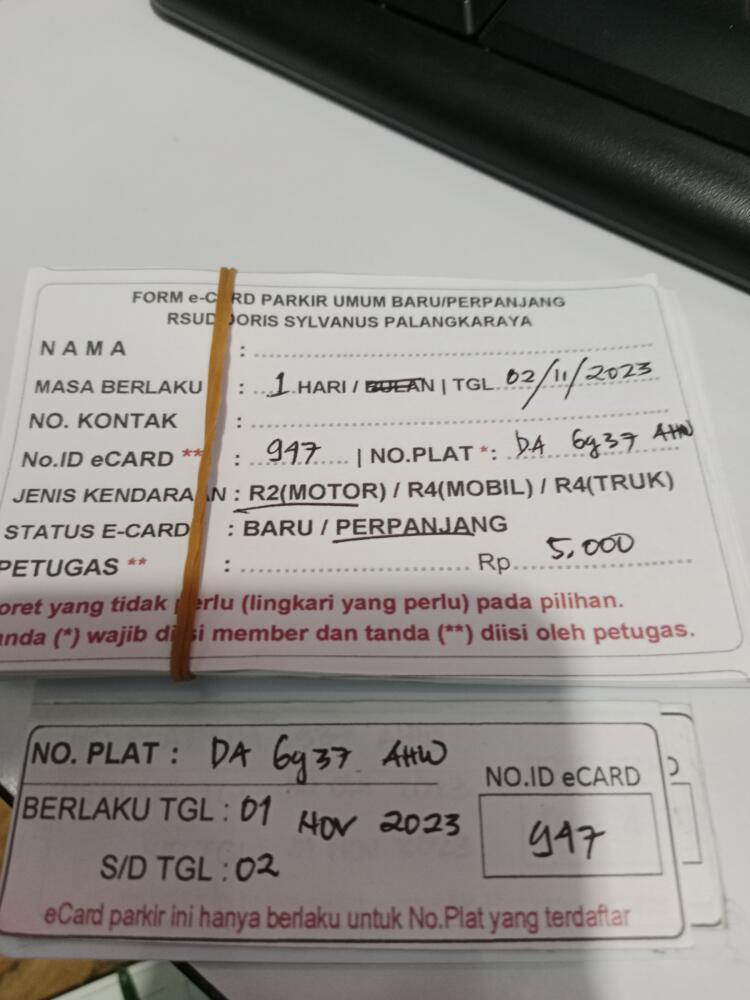 FORM e-CARD PARKIR UMUM BARU/PERPANJANG
RSUD DORIS SYLVANUS PALANGKARAYA
N A M A :
MASA BERLAKU : 1 HARI / BULAN | TGL 02/11/2023
NO. KONTAK :
No.ID eCARD ** : 947 | NO.PLAT *: DA 6937 AHW
JENIS KENDARAAN : R2(MOTOR) / R4(MOBIL) / R4(TRUK)
STATUS E-CARD : BARU / PERPANJANG
PETUGAS ** : Rp 5,000
oret yang tidak perlu (lingkari yang perlu) pada pilihan.
anda (*) wajib diisi member dan tanda (**) diisi oleh petugas.
NO. PLAT : DA 6937 AHW
NO.ID eCARD
BERLAKU TGL : 01 NOV 2023
947
S/D TGL : 02
eCard parkir ini hanya berlaku untuk No.Plat yang terdaftar